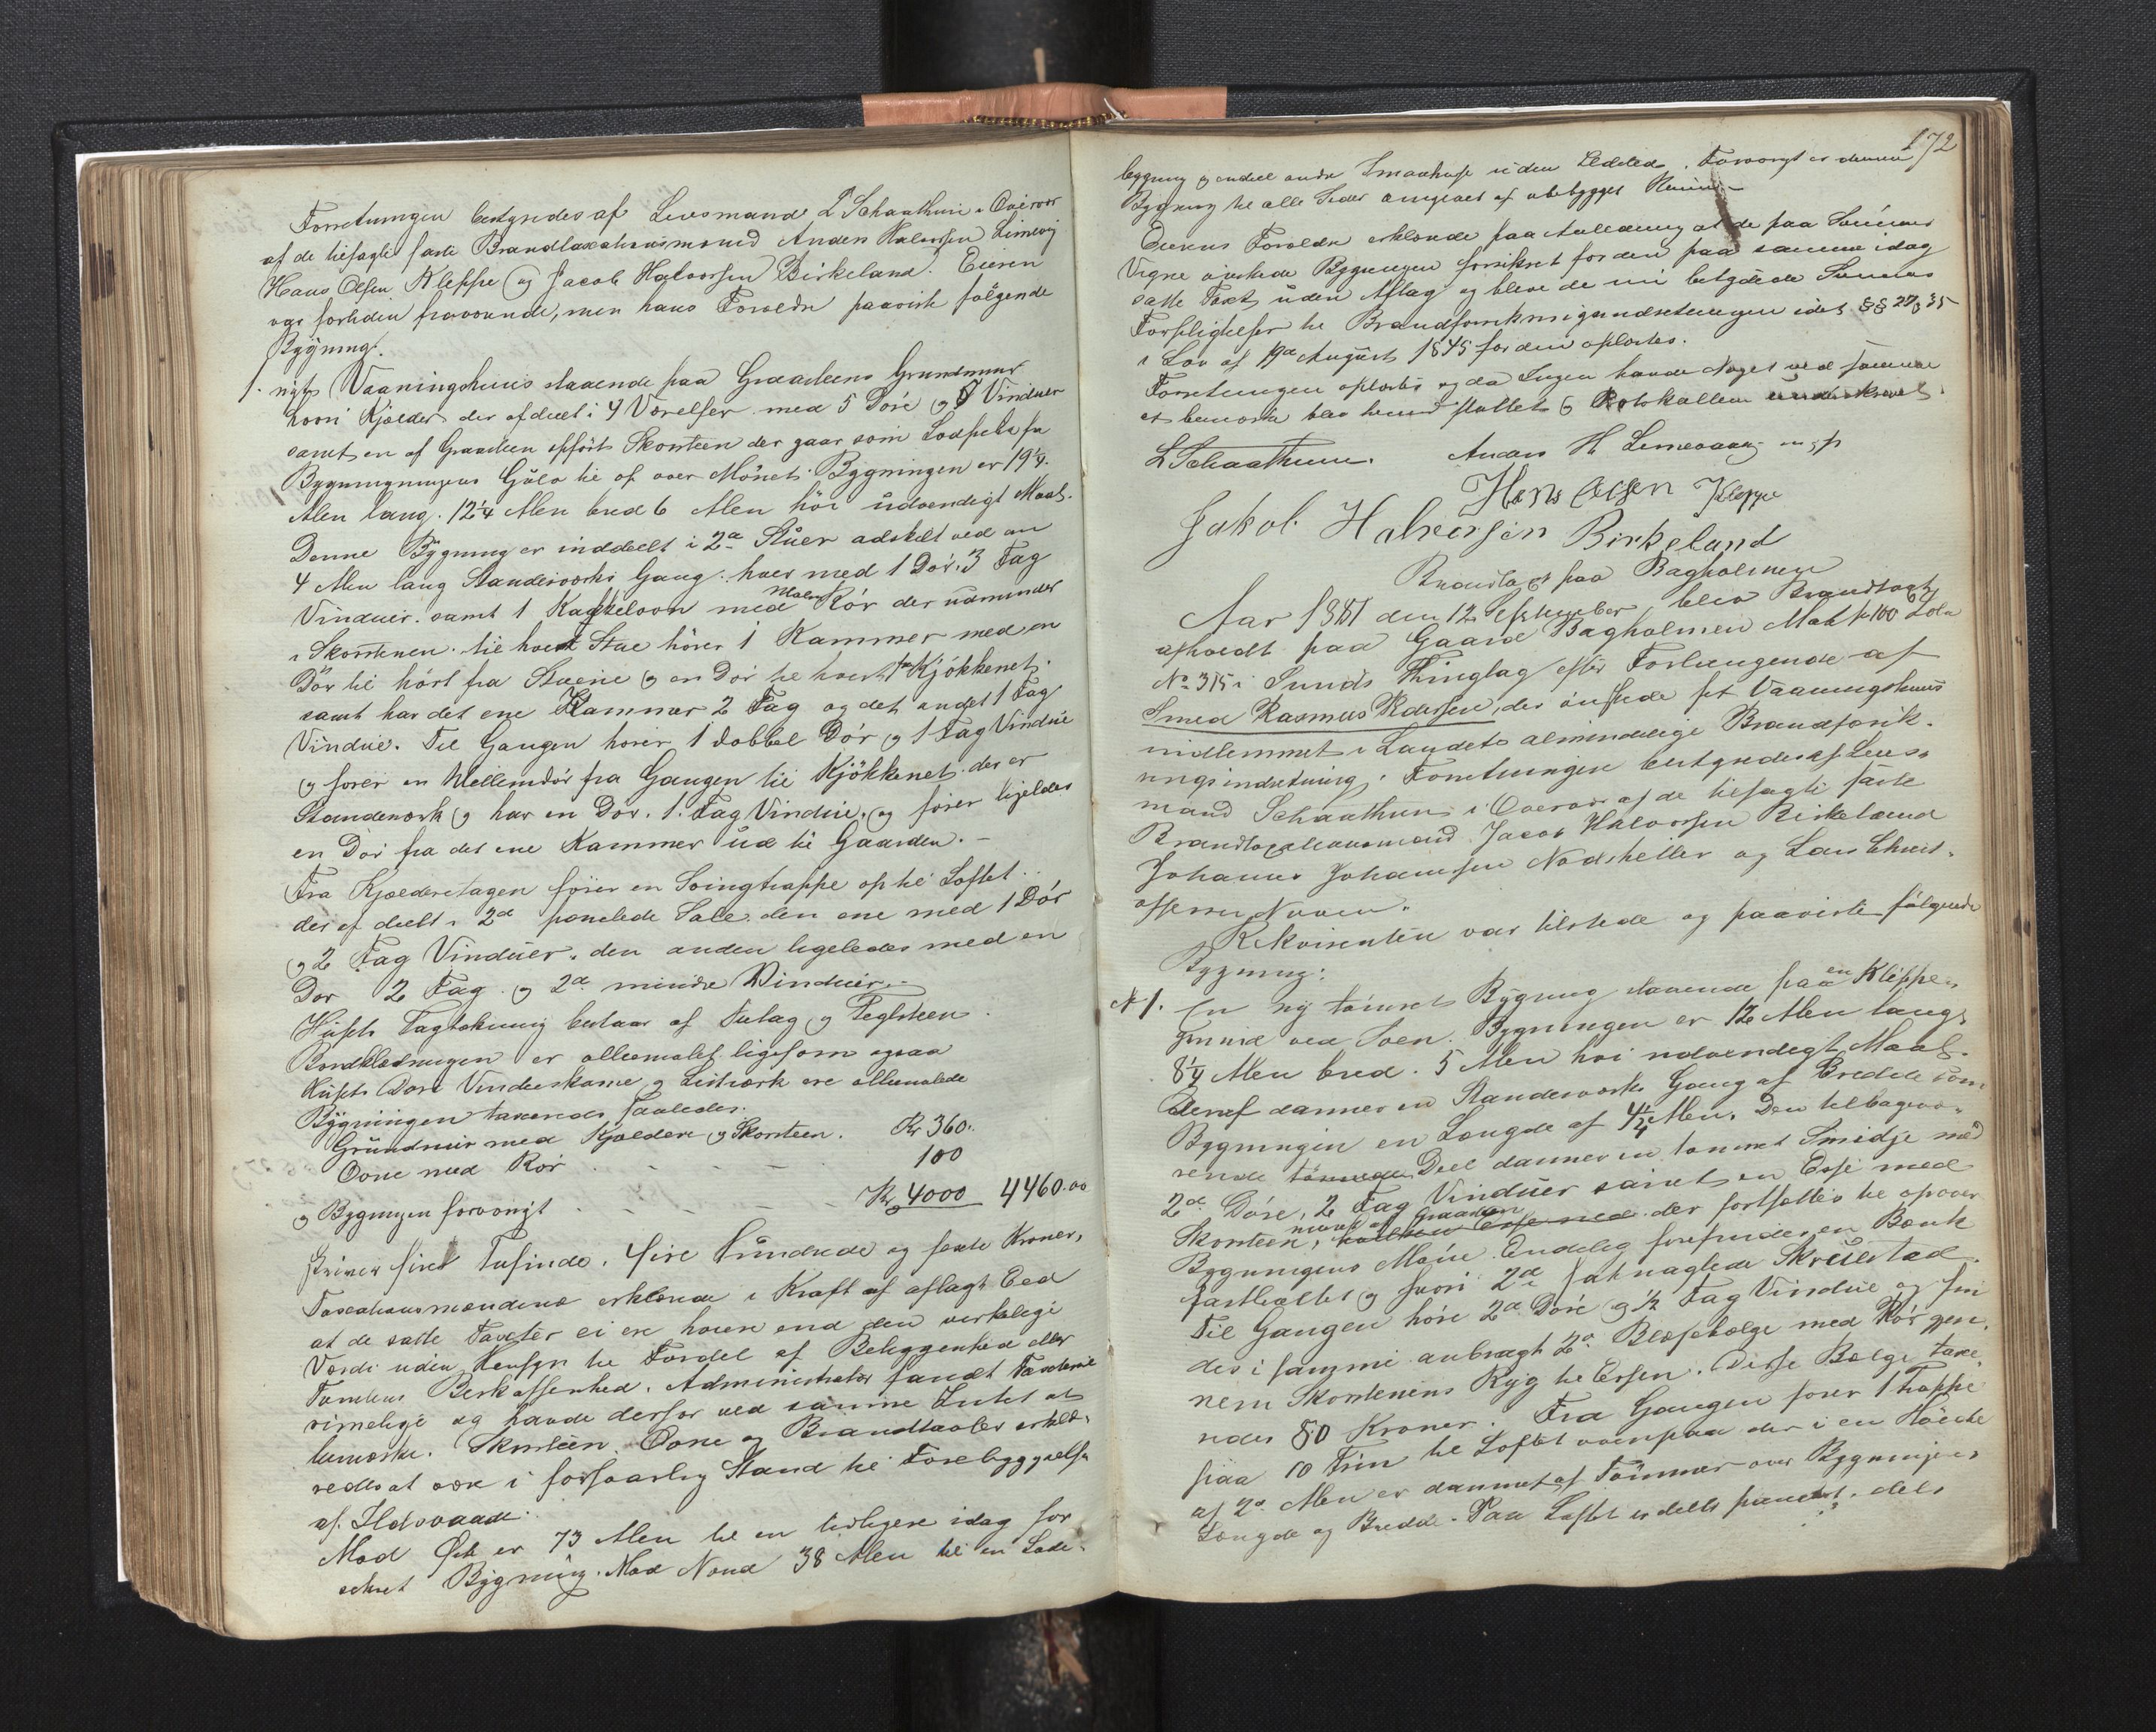 Forretningen bestyredes af Lensmand L Schaathun i Overvær
af de tilsagte faste Brandtaxationsmænd Anders Halvorsen Limevåg
Hans Olsen Kleppe og Jacob Halvorsen Birkeland. Eieren
var forhen fraværende, men hans Forældre paaviste følgende
Bygning.
1. nyt Vaaningshuus staaende paa Graasteens Grundmuur
hvori Kjelder der afdeelt i 4 Værelser med 5 Døre og 7 Vinduer
samt en af Graasteen opført Skorsteen der gaar som Lodpibe fra
Bygningens Gulv til op over Mønet. Bygningen er 19¼
Alen lang. 12¼ Alen bred 6 Alen høi udvendigt Maal.
Denne Bygning er inddeelt i 2de Stuer adskilt ved en
4 Alen lang Standerværks Gang. hver med 1 Dør, 3 Fag
Vinduer. samt 1 Kakkelovn med Rør der udmunder
i Skorstenen. til hver Stue hører 1 Kammer med en
Dør til hørt fra Stuene og en Dør til hvert fra Kjøkkenet.
samt har det ene Kammer 2 Fag og det andet 1 Fag
Vindue. Til Gangen hører 1 dobbel Dør og 1 Fag Vindue
og fører en Mellemdør fra Gangen til Kjøkkenet. der er
Standerværk og har en Dør. 1. Fag Vindue. og fører ligeledes
en Dør fra det ene Kammer ud til Gaarden. –
Fra Kjelderetagen fører en Svingtrappe op til Loftet
der af deelt i 2de panelede Sale. den ene med 1 Dør
og 2 Fag Vinduer. den anden ligeledes med en
Dør 2 Fag og 2de mindre Vinduer. –
Husets Tagtækning bestaar af Tutag og Teglsteen.
Bordklædningen er oliemalet ligesom ogsaa
Husets Døre Vindueskarme og Listværk ere oliemalede
Bygningen taxeredes saaledes:
Grundmur med Kjelder og Skorsteen. Kr 360.
Ovne med Rør 100
og Bygningen forøvrigt Kr 4000 4460.00
skriver fire Tusinde, fire Hundrede og sexti Kroner,
Taxationsmændene erklærede i Kraft af aflagt Eed
at de satte Taxter ei ere høiere end den virkelige
Værdi uden Hensyn til Fordel af Beliggenhed eller
Tomtens Beskaffenhed. Administrator fandt Taxterne
rimelige og havde derfor ved samme Intet at
bemærke. Skorsteen, Ovne og Brandtavler erklæ-
redes at være i forsvarlig Stand til Forebyggelse
af Ildsvaade.
Mod Øst er 73 Alen til en tidligere idag for
sikret Bygning. Mod Nord 38 Alen til en Lade-
172
bygning og endeel andre Smaahuse uden Ildsted. Forøvrigt er denne
Bygning til alle Sider omgivet af ubebygget
Eierens Forældre erklærede paa Anledning at de paa Sønnens
Vegne ønskede Bygningen forsikret for den paa samme idag
satte Taxt uden Aflag og bleve de nu betydede Sønnens
Forpligtelser til Brandforsikringsindretningen idet §§ 27 & 35
i Lov af 19de August 1845 for dem oplæstes.
Forretningen oplæstes og da Ingen havde Noget ved samme
at bemærke blev den sluttet og Protokollen underskrevet.
L Schaathun. Anders H Limevaag m, p
Hans Olsen Kleppe
Jakob Halversen Birkeland
Brandtaxt paa Bagholmen
Aar 1881 den 12 September, blev Brandtaxt
afholdt paa Gaard Bagholmen Mat No 100
No 315 i Sunds Thinglag efter Forlangende af
Smed Rasmus Pedersen, der ønskede sit Vaaningshuus
indlemmet i Landets almindelige Brandforsik-
ringsindretning. Forretningen bestyredes af Lens-
mand Schaathun i Overvær af de tilsagte faste
Brandtaxationsmænd Jacob Halvorsen Birkeland
Johannes Johannesen Nordsheller og Lars Christ-
offersen
Rekvirenten var tilstede og paaviste følgende
Bygning:
No 1. En ny tømret Bygning staaende paa en Klippe-
grund ved Søen. Bygningen er 12 Alen lang,
8¼ Alen bred. 5 Alen høi udvendigt Maal.
Heraf dannes en Standerværks Gang af Bredde som
Bygningen en Længde af 4¼ Alen. Den tilbagevæ-
rende Deel danner en tømret Smidje med
2de Døre, 2 Fag Vinduer samt en Esse med
Skorsteen, muret af Graasteen der fortsættes til op over
Bygningens Møne. Endelig forefindes en Bænk
fastboltet og hvori 2de fastnaglede Skruestæd.
Til Gangen høre 2de Døre og ½ Fag Vindue og fin
des i samme anbragt 2de Blæsebælge med Rør gjen-
nem Skorstenens Ryg til Essen. Disse Bælge taxe-
redes 80 Kroner. Fra Gangen fører 1 Trappe
paa 10 Trin til Loftet ovenpaa der i en Høide
af 2de Alen er dannet af Tømmer over Bygningens
Længde og Bredde. Paa Loftet er dels panelet. dels